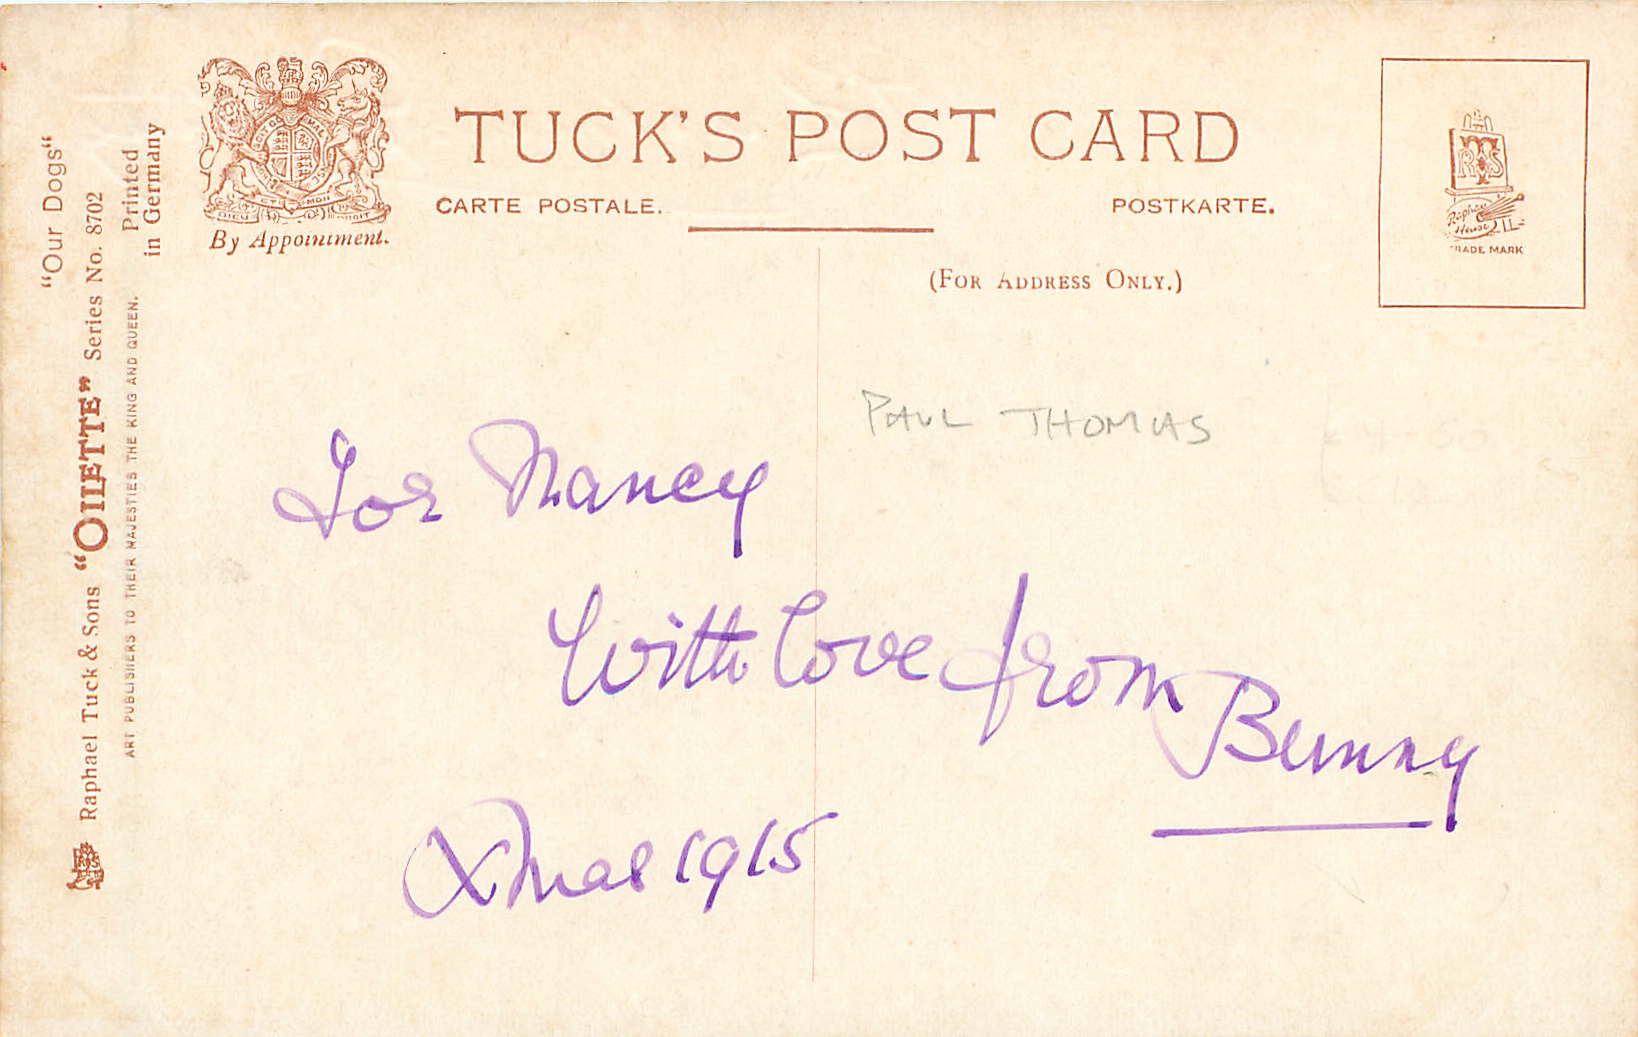 "Our Dogs"
Raphael Tuck & Sons "OILETTE" Series No. 8702
ART PUBLISHERS TO THEIR MAJESTIES THE KING AND QUEEN.
Printed
in Germany
DIEU ET MON DROIT
By Appointment.
TUCK'S POST CARD
CARTE POSTALE.
POSTKARTE.
(FOR ADDRESS ONLY.)
RTS
Raphael
House
TRADE MARK
PAUL THOMAS
For Nancy
With love from Bunny
Xmas 1915